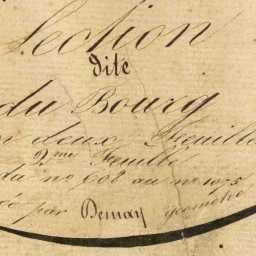 Section
dite
du Bourg
deux Feuille
2me Feuille
du no 608 au no 1075
par Demay géomètre